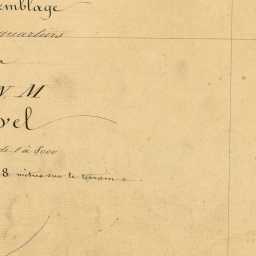 emblage
quartiers
N. M
vel
de 1 à 5000
8 mètres sur le terrain